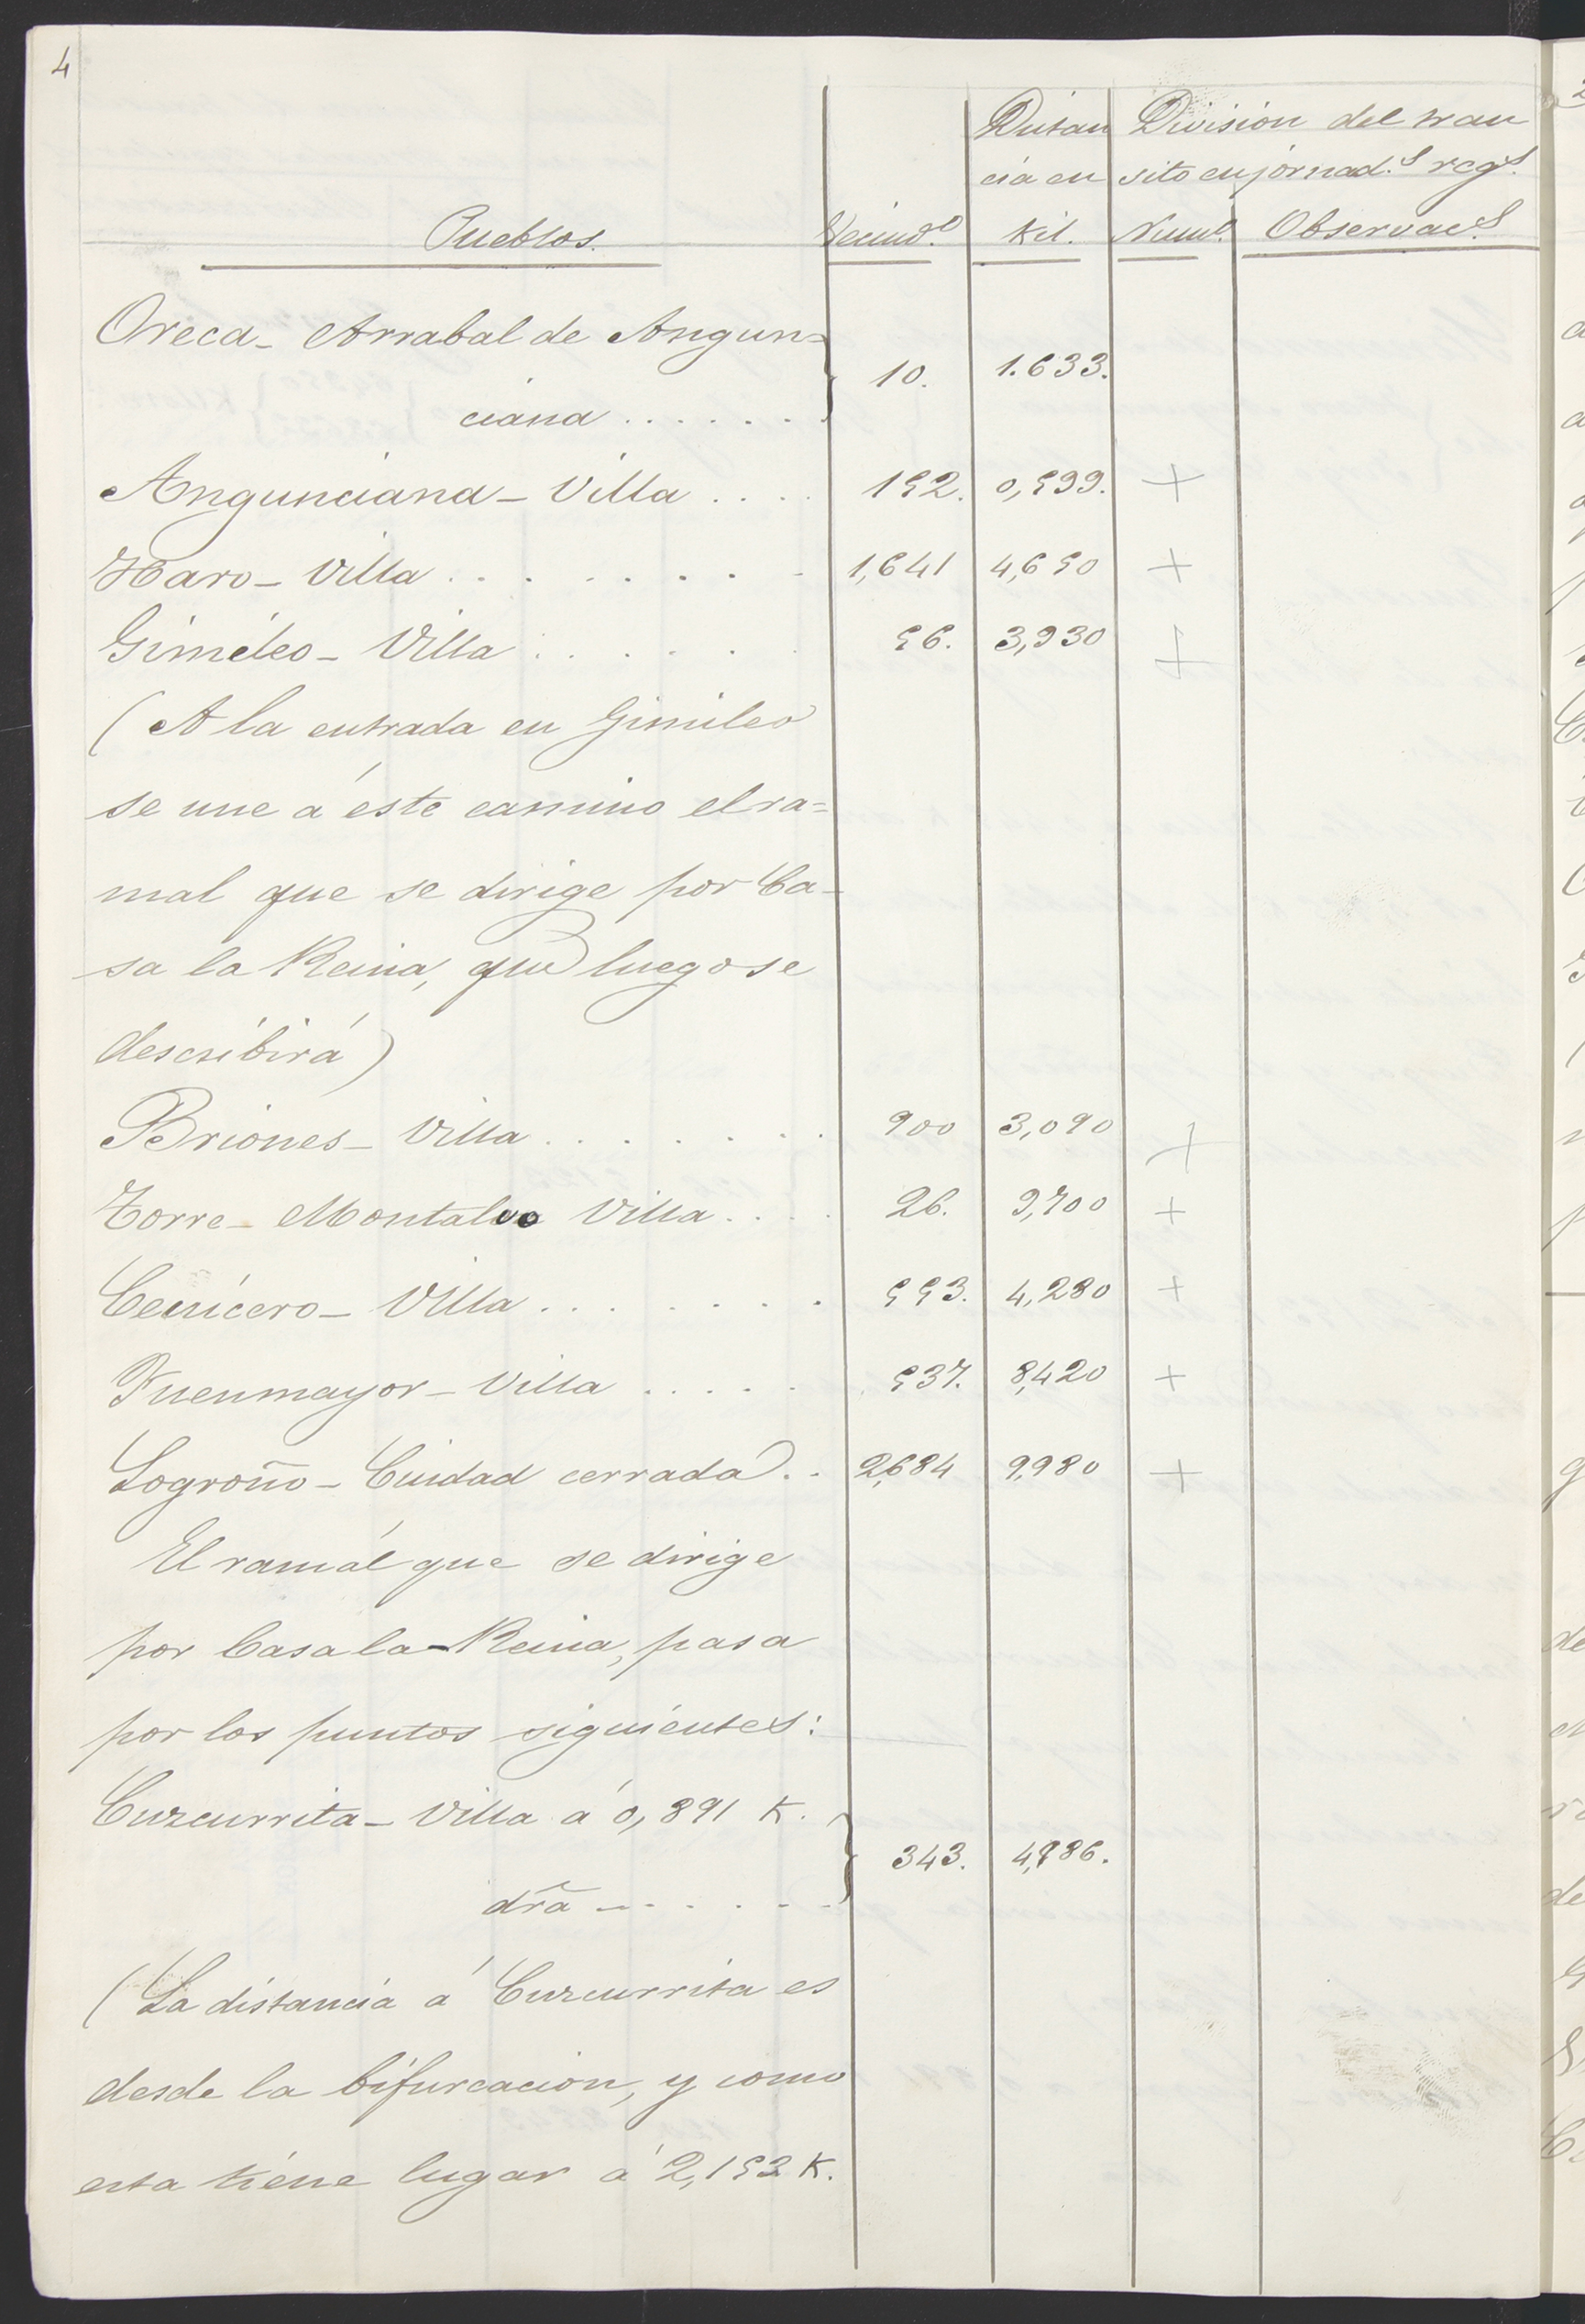 4
Distan División del tran
cia en sito en jornad.s reg.s
Pueblos. Vecind.o Kil. Num.o Observac.s
Oreca - Arrabal de Angun=
10. 1.633.
ciana . . . . . . .
Angunciana - Villa . . . . 152. 0,599. +
Haro - Villa . . . . . . . . 1,641 4,650 +
Giméleo - Villa . . . . . . 56. 3,930 +
(A la entrada en Gimileo
se une á éste camino el ra=
mal que se dirige por Ca-
sa la Reina, que luego se
describirá)
Briones - Villa . . . . . . . . 900 3,090 +
Torre - Montalvo Villa . . . . 26. 9,700 +
Cenicero - Villa . . . . . . . . 553. 4,280 +
Fuenmayor - Villa . . . . . 537. 8,420 +
Logroño - Ciudad cerrada . . 2,684 9,980 +
El ramál que se dirige
por Casa la - Reina, pasa
por los puntos siguientes:
Cuzcurrita - Villa á 0,891 K.
343. 4,886.
dr̃a - . . . . .
(La distancia á Cuzcurrita es
desde la bifurcacion, y como
esta tiene lugar á 2,153 K.